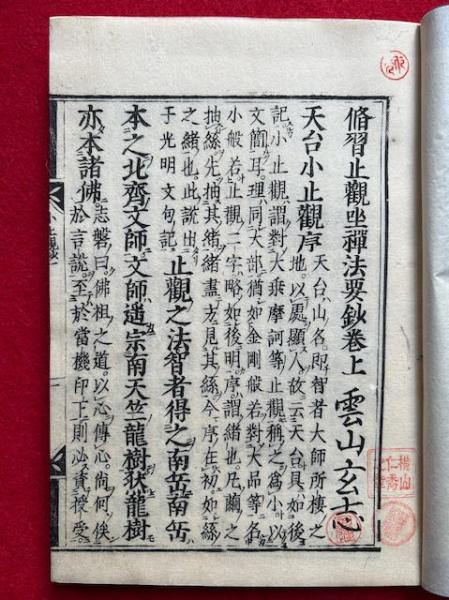 脩習止觀坐禪法要鈔卷上 雲山玄志
天台小止觀序 天台。山名。即智者大師所棲之
地。以處顯人。故云天台。具如後
記。小止觀謂對大乘摩訶等止觀稱之爲小。以
文簡耳。理同大部。猶如金剛般若對大品等名
小般若。止觀二字略如後明。序謂緒也。凡繭之
抽絲先抽其緒緒盡方見其絲今序在初如絲
之緒也。此謂出
于光明文句記
止觀之法智者得之南岳南岳
本之北齊文師文師遠宗南天竺龍樹龍樹
亦本諸佛 志磐曰。佛祖之道。以心傳心。尚何俟
於言說。至於當機印下則必資授受。